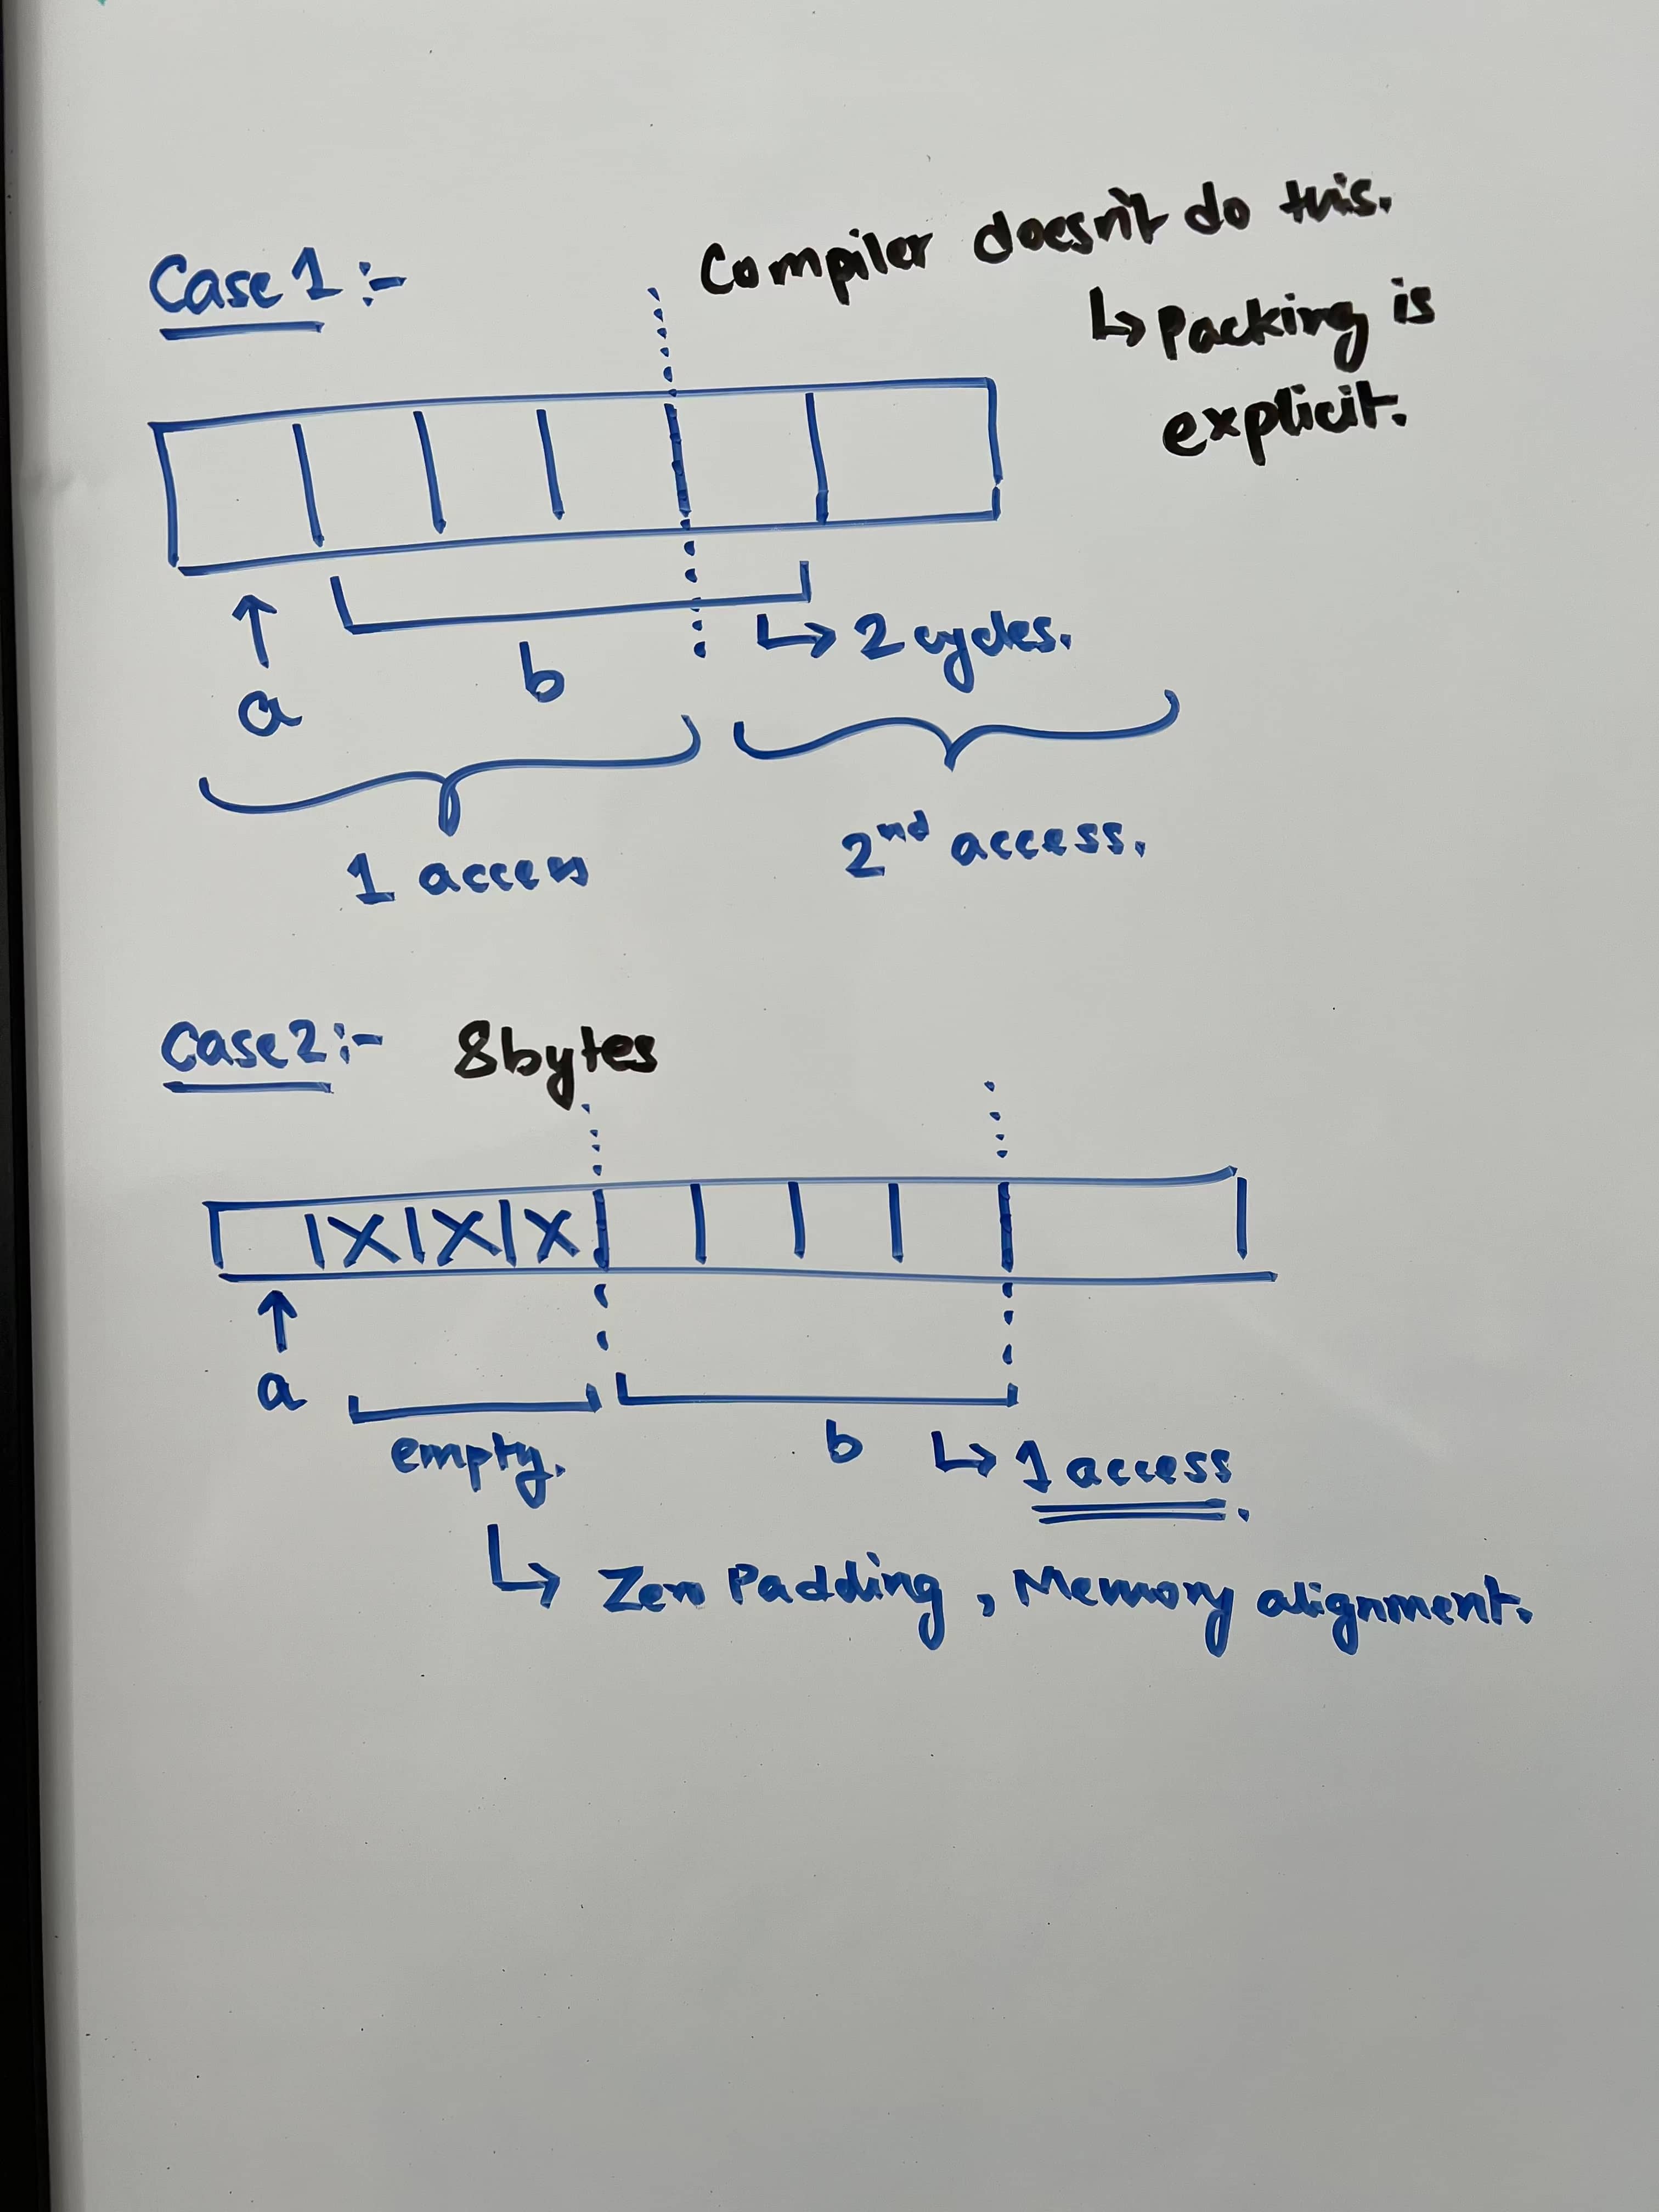 Case 1 :-
Compiler doesn't do this.
↳ Packing is
explicit.
↳ 2 cycles.
b
a
1 access
2nd access.
Case 2 :- 8 bytes
X X X
a
empty.
b ↳ 1 access.
↳ Zero Padding, Memory alignment.